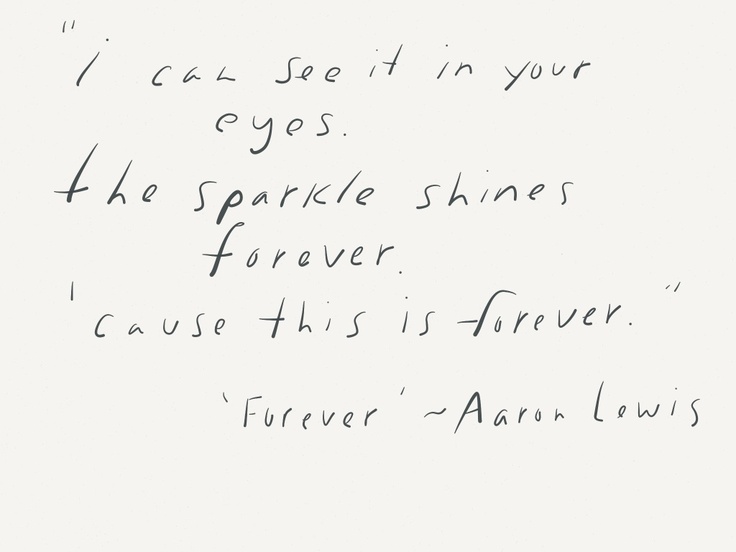 "i can see it in your
eyes.
the sparkle shines
forever.
'cause this is forever."
'Forever' ~ Aaron Lewis